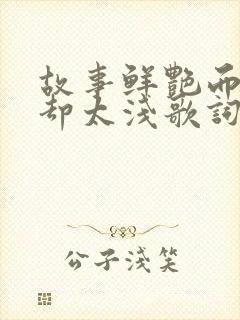 故事鲜艷而
却太浅歌詞
公子浅笑